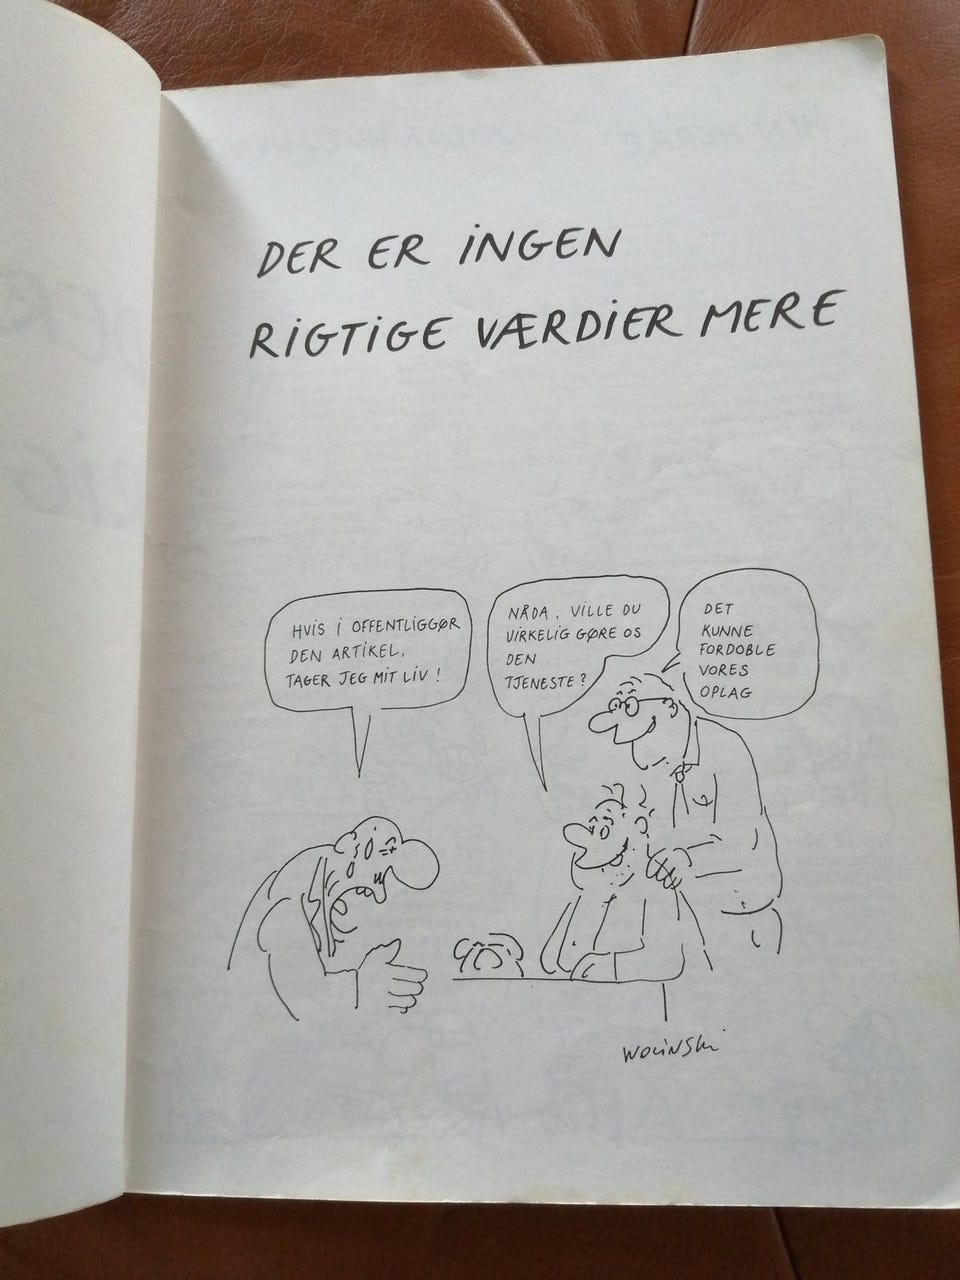 DER ER INGEN
RIGTIGE VÆRDIER MERE
HVIS I OFFENTLIGGØR
DEN ARTIKEL,
TAGER JEG MIT LIV !
NÅDA, VILLE DU
VIRKELIG GØRE OS
DEN
TJENESTE?
DET
KUNNE
FORDOBLE
VORES
OPLAG
WOLINSKI